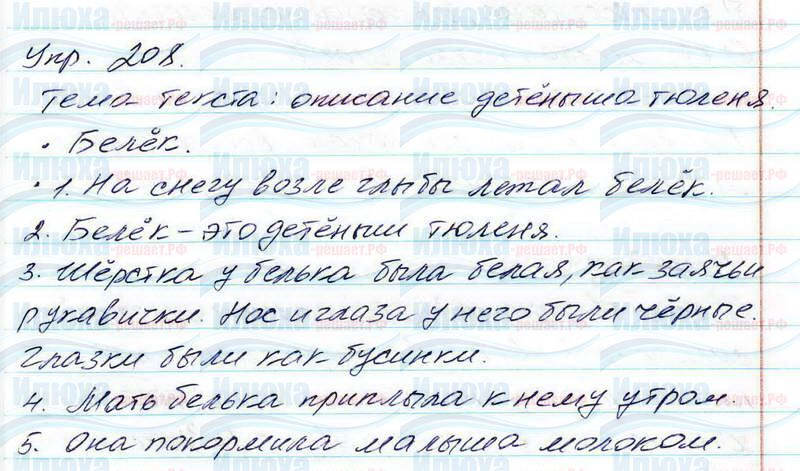 Упр. 208.
Тема текста: описание детёныша тюленя.
• Белёк.
• 1. На снегу возле глыбы лежал белёк.
2. Белёк – это детёныш тюленя.
3. Шёрстка у белька была белая, как заячьи
рукавички. Нос и глаза у него были чёрные.
Глазки были как бусинки.
4. Мать белька приплыла к нему утром.
5. Она покормила малыша молоком.